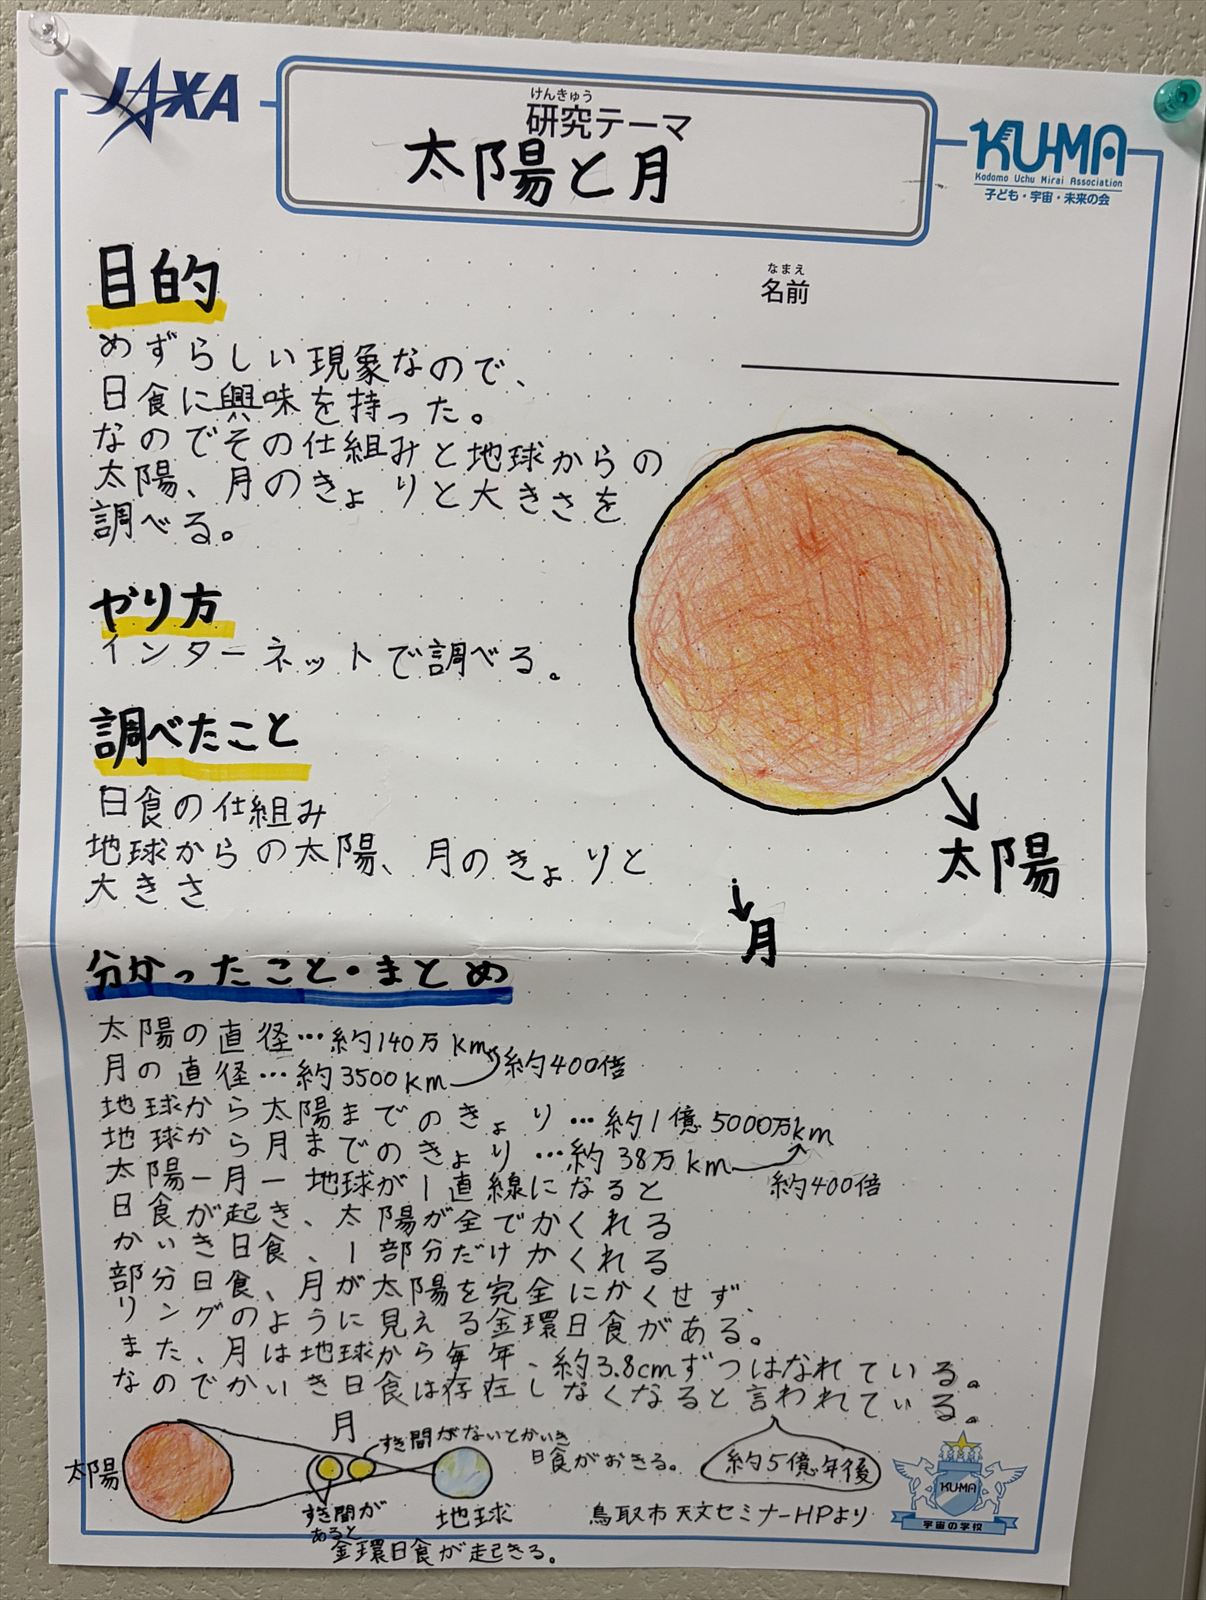 JAXA
けんきゅう
研究テーマ
太陽と月
KU-MA
Kodomo Uchu Mirai Association
子ども・宇宙・未来の会
なまえ
名前
目的
めずらしい現象なので、
日食に興味を持った。
なのでその仕組みと地球からの
太陽、月のきょりと大きさを
調べる。
やり方
インターネットで調べる。
調べたこと
日食の仕組み
地球からの太陽、月のきょりと
大きさ
太陽
月
分かったこと・まとめ
太陽の直径…約140万km
月の直径…約3500km
約400倍
地球から太陽までのきょり…約1億5000万km
地球から月までのきょり…約38万km
約400倍
太陽ー月ー地球が1直線になると
日食が起き、太陽が全でかくれる
かいき日食、1部分だけかくれる
部分日食、月が太陽を完全にかくせず、
リングのように見える金環日食がある。
また、月は地球から毎年、約3.8cmずつはなれている。
なのでかいき日食は存在しなくなると言われている。
約5億年後
太陽
月
すき間がないとかいき
日食がおきる。
地球
すき間が
あると
金環日食が起きる。
鳥取市天文セミナーHPより
KUMA
宇宙の学校